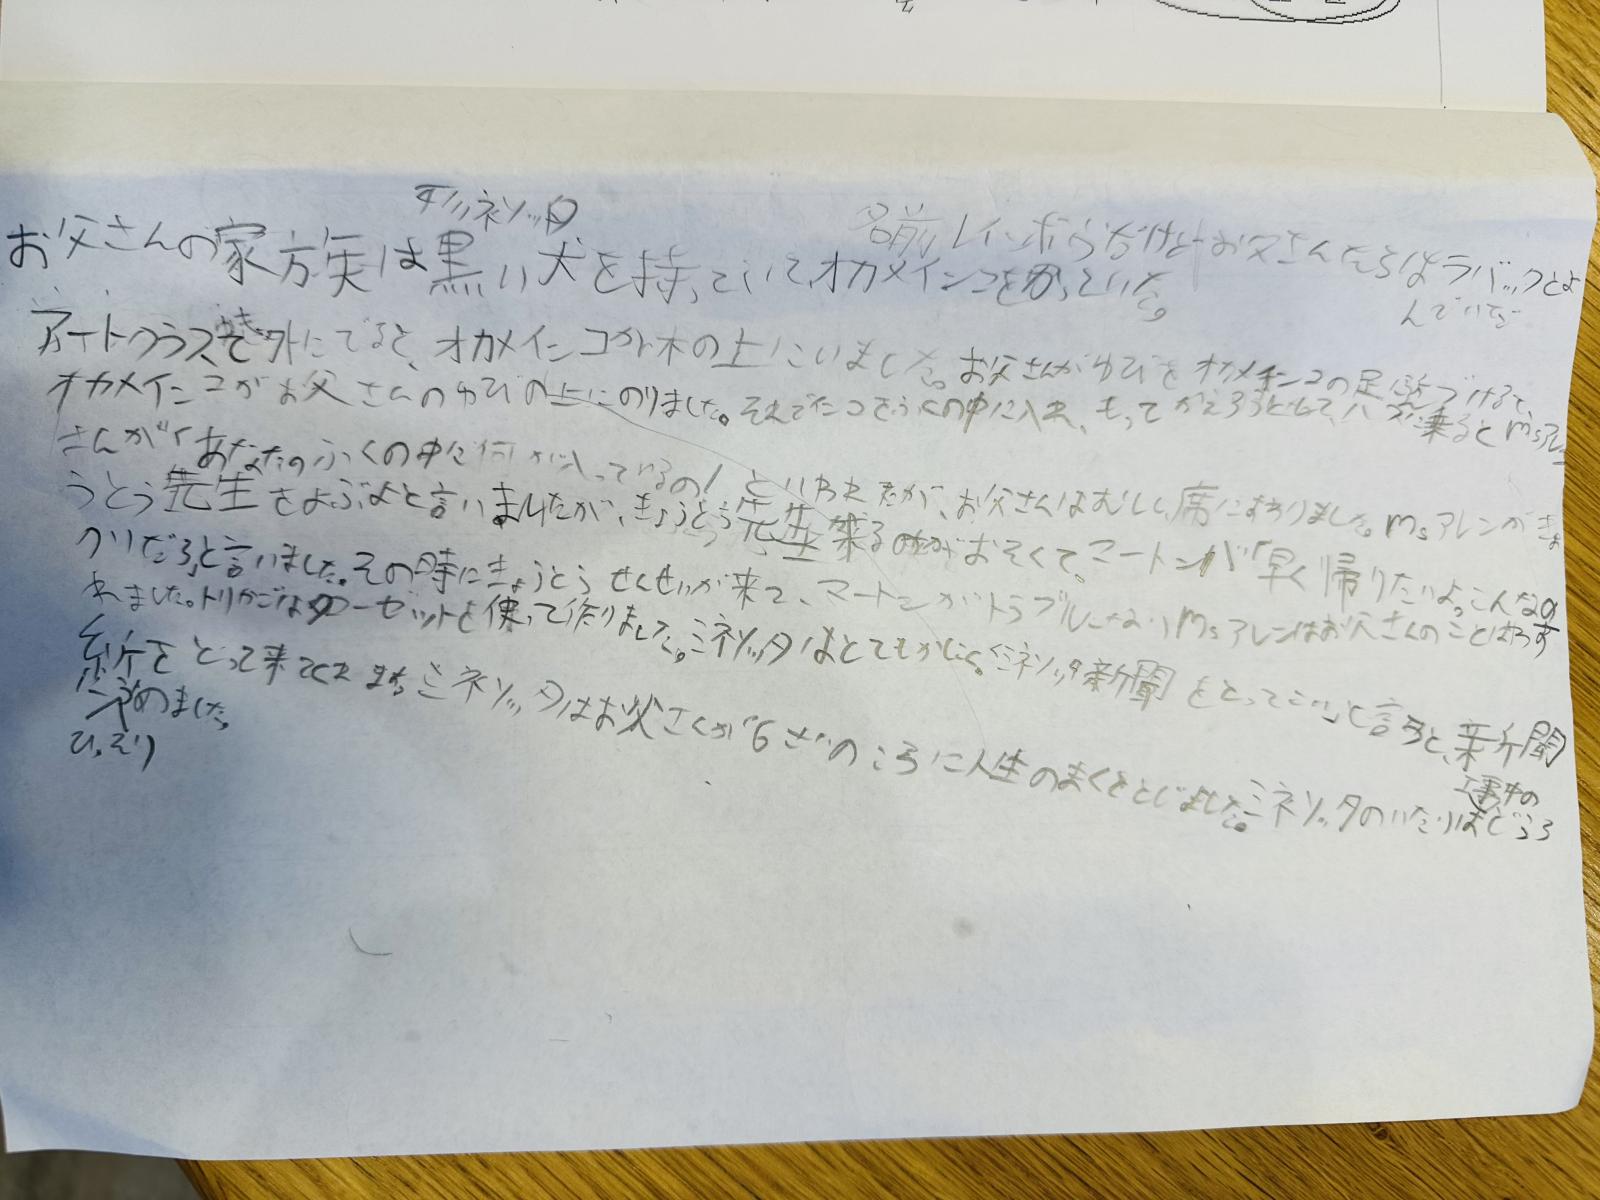 ミネソッタ
名前レインボらだけどお父さんたちはラバックとよ
んでいた
お父さんの家族は黒い犬を持っていて、オカメインコをかっていた。
アートクラスで外にでると、オカメインコが木の上にいました。お父さんがゆびをオカメインコの足に近づけると、
オカメインコがお父さんのゆびの上にのりました。それでインコをふくの中に入れ、もってかえろうとして、バスに乗るとMsアレン
さんが「あなたのふくの中に何が入っているの!といわれたが、お父さんはむしし、席にすわりました。Msアレンがきょ
うとう先生をよぶよと言いましたが、きょうとう先生来るのがおそくて、マートンが「早く帰りたいよ。こんなの
クソだろ」と言いました。その時にきょうとうせんせいが来て、マートンがトラブルになりMsアレンはお父さんのことはわす
れました。トリかごはクローゼットを使って作りました。ミネソッタはとてもかしこく「ミネソッタ新聞をとってこい」と言うと、新聞
紙をとって来てくれました。ミネソッタはお父さんが6さいのころに人生のまくをとじました。ミネソッタのいたいはどうろ
工事中の
にうめました。
ひっそり